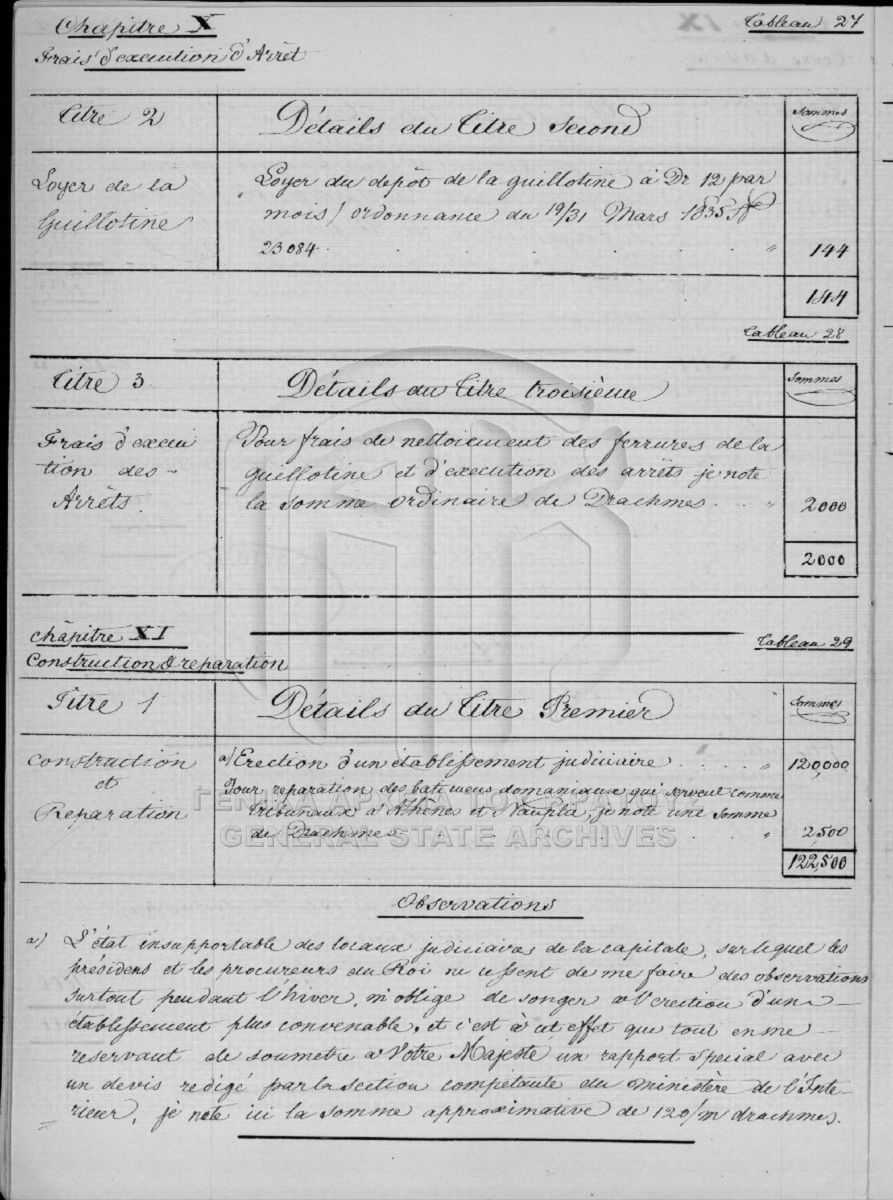 Chapitre X
Tableau 27
Frais d'execution d'Arrêt
Titre 2
Détails du Titre Second
Sommes
Loyer de la
Guillotine
Loyer du depôt de la guillotine à Dr 12 par
mois / ordonnance du 19/31 Mars 1835
23084 . . . . . "
144
144
Tableau 28
Titre 3
Détails du Titre troisième
Sommes
Frais d'execu
tion des -
Arrêts.
Pour frais de nettoiement des ferrures de la
guillotine et d'execution des arrêts je note
la somme ordinaire de Drachmes . . "
2000
2000
Chapitre XI
Tableau 29
Construction & reparation
Titre 1
Détails du Titre Premier
Sommes
Construction
et
Reparation
a) Erection d'un établissement judiciaire . . . . . "
120,000
Pour reparation des batimens domaniaux qui servent comme
Tribunaux d'Athènes et Nauplie, je note une somme
de Drachmes . . . . "
2,500
122,500
ΓΕΝΙΚΑ ΑΡΧΕΙΑ ΤΟΥ ΚΡΑΤΟΥΣ
GENERAL STATE ARCHIVES
Observations
a) L'état insupportable des locaux judiciaires de la capitale, sur lequel les
présidens et les procureurs du Roi ne cessent de me faire des observations
surtout pendant l'hiver, m'oblige de songer à l'erection d'un -
établissement plus convenable, et c'est à cet effet que tout en me -
reservant de soumetre à Votre Majesté un rapport special avec
un devis redigé par la section compétante du ministère de l'Inte-
rieur, je note ici la somme approximative de 120/m drachmes.